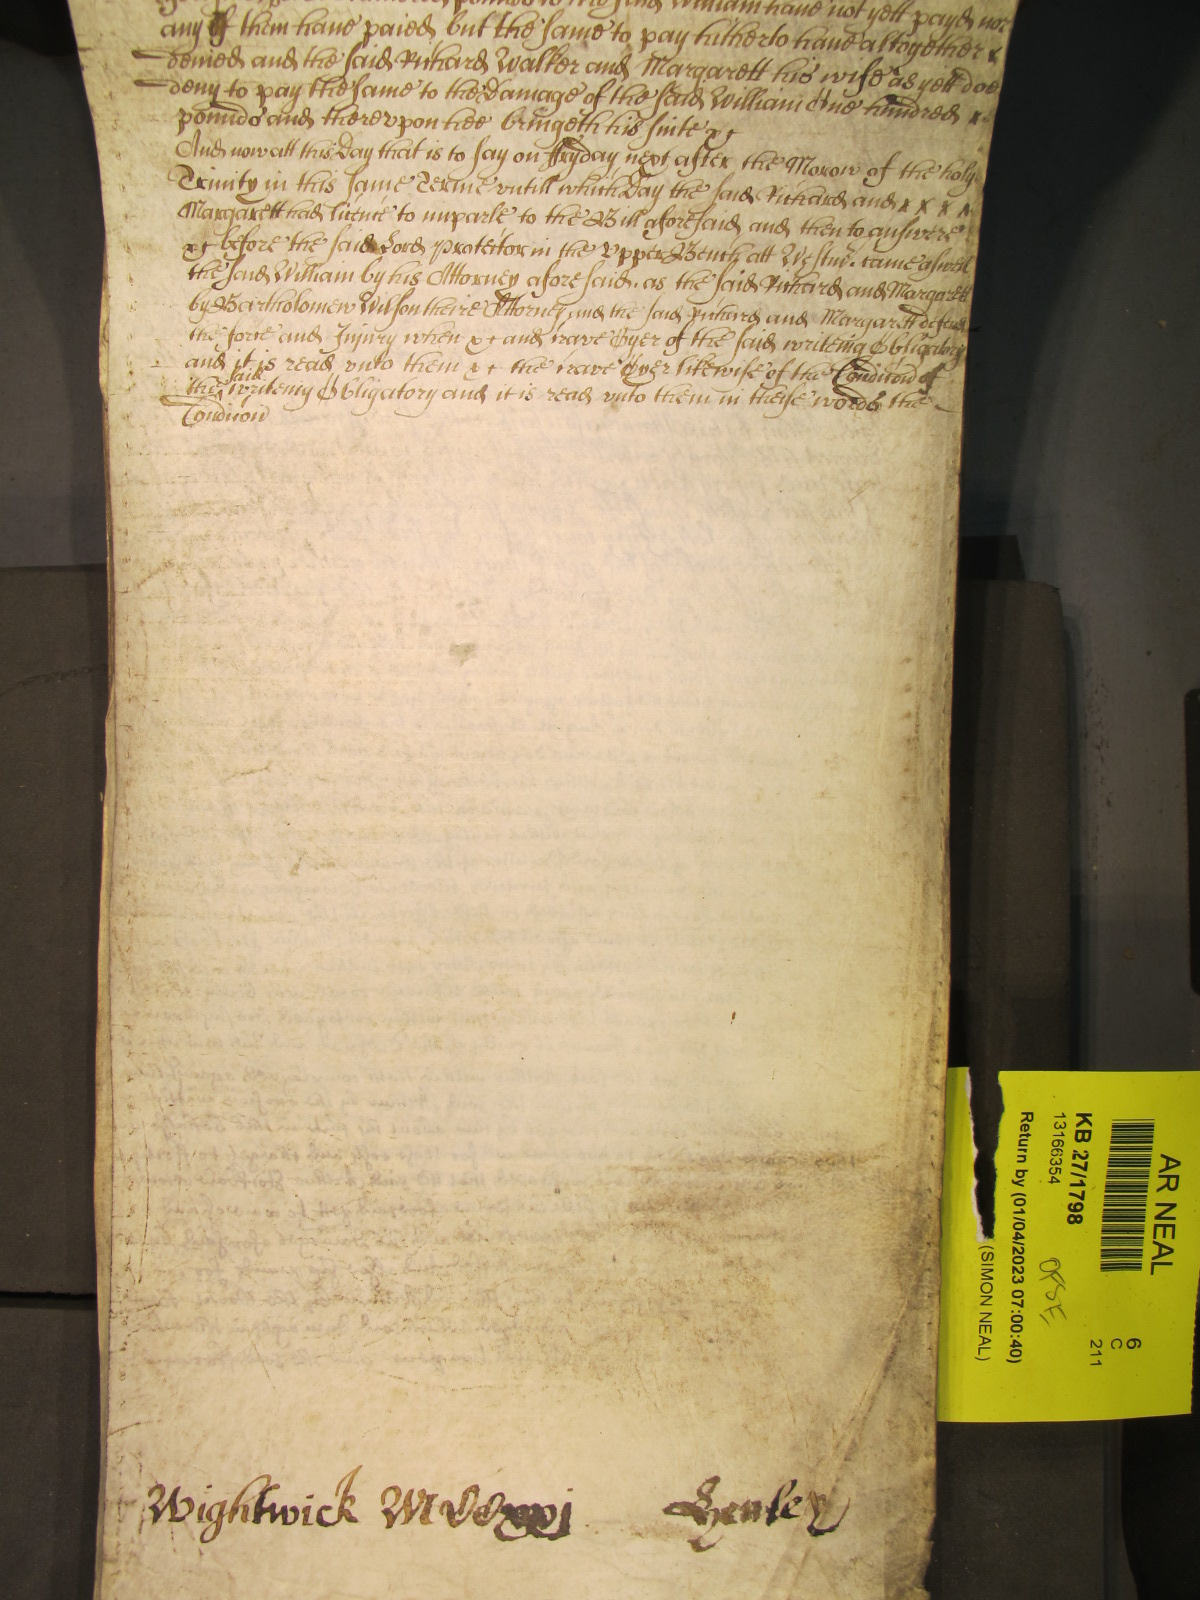 pounds to the said William have not yett payd nor
any of them have paied but the same to pay hitherto have altogether x
denied and the said Richard Walker and Margarett his wife as yett doe
deny to pay the same to the Damage of the said William One hundred x
pounds and thereupon hee bringeth his suite &c
And now att this Day that is to say on Fryday next after the Morow of the holy
Trinity in this same Terme untill which Day the said Richard and x x x x
Margarett had licence to imparle to the Bill aforesaid and then to answere
&c before the said Lord Protector in the Upper Bench att Westmr. came aswell
the said William by his Attorney aforesaid. as the said Richard and Margarett
by Bartholomew Wilson theire Attorney and the said Richard and Margarett defend
the force and Injury when &c and crave Oyer of the said writeing Obligatory
and it is read unto them &c the crave Oyer likewise of the Condicon of
the said writeing Obligatory and it is read unto them in theise words the
Condicon
Wightwick Henley
AR NEAL
6
C
211
KB 27/1798
13166354
Return by (01/04/2023 07:00:40)
(SIMON NEAL)